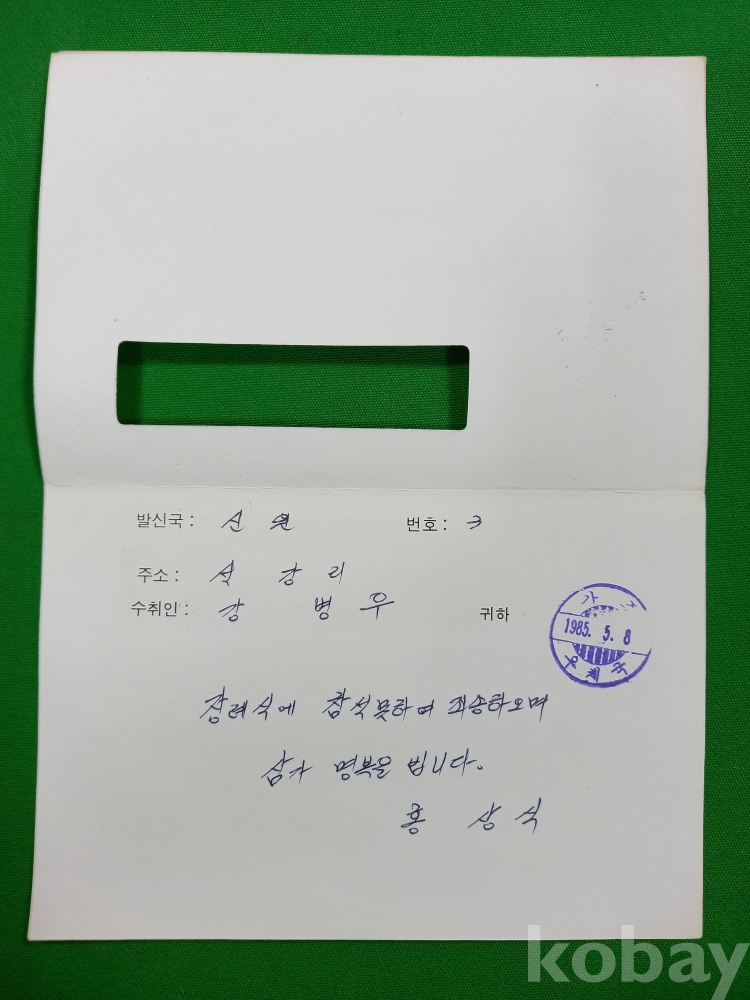 발신국 : 신원 번호 : 3
주소 : 석강리
수취인 : 강병우 귀하
1985. 5. 8
우체국
장례식에 참석못하여 죄송하오며
삼가 명복을 빕니다.
홍상식
kobay